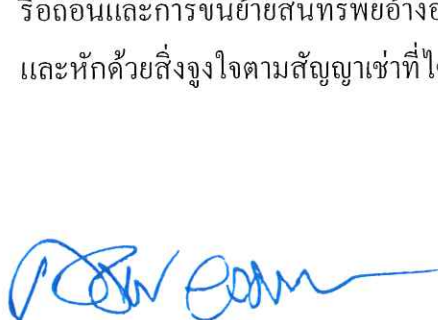 รื้อถอนและการขนย้ายสินทรัพย์อ้างอ
และหักด้วยสิ่งจูงใจตามสัญญาเช่าที่ได